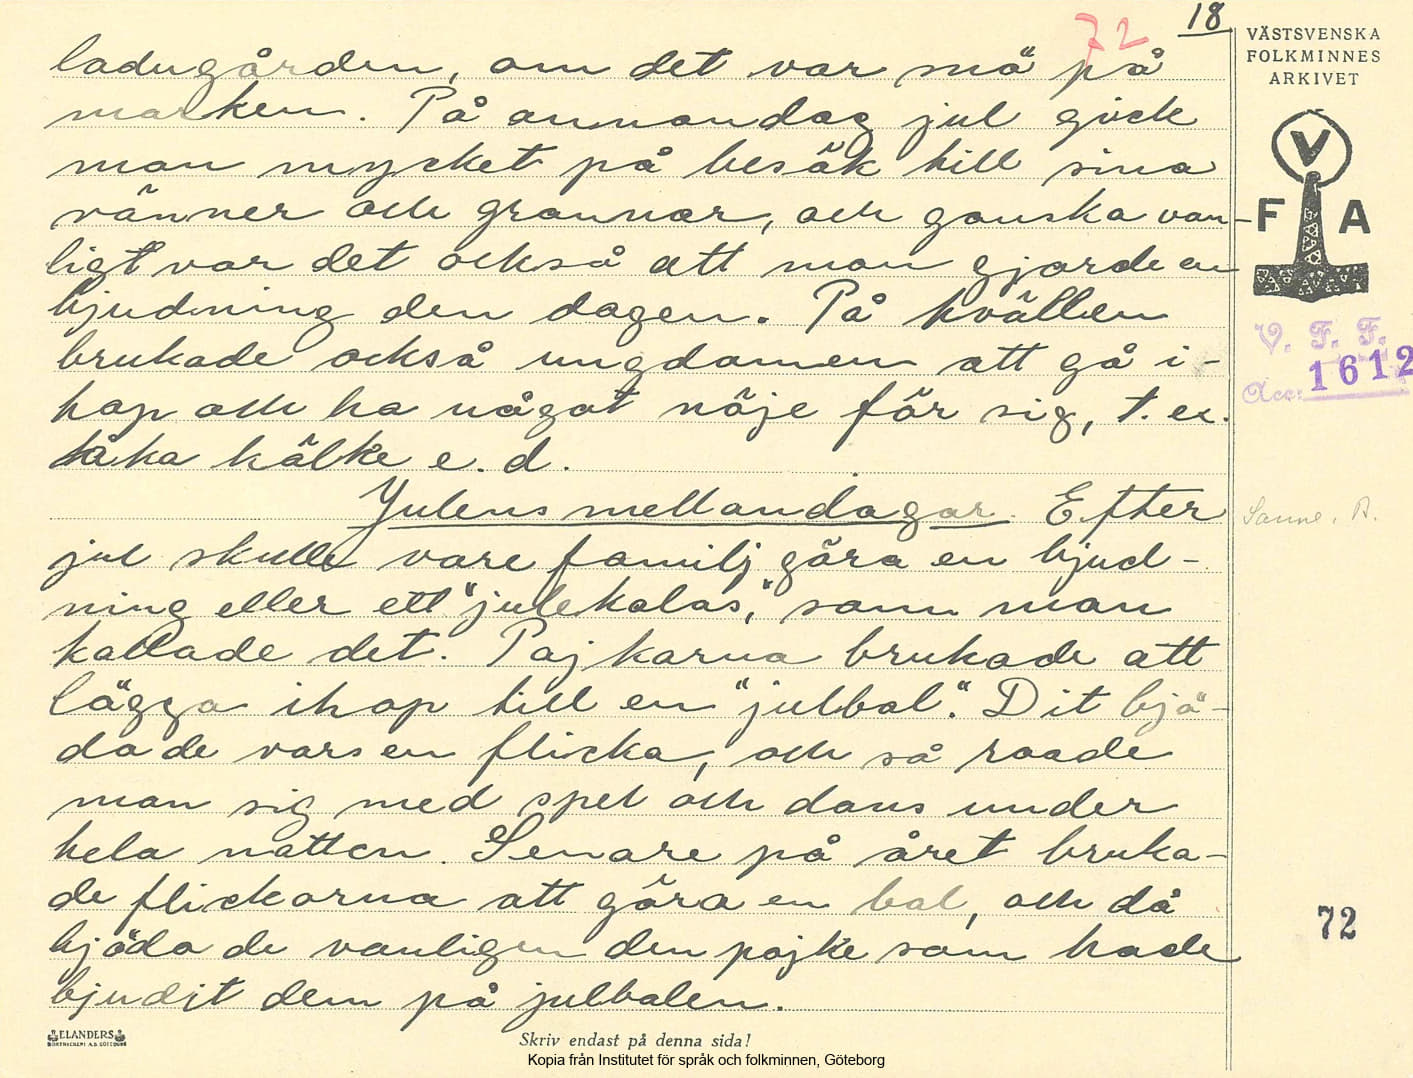 18
72
VÄSTSVENSKA
FOLKMINNES
ARKIVET
V
F A
V. F. F.
Acc: 1612
ladugården, om det var snö på
marken. På annandag jul gick
man mycket på besök till sina
vänner och grannar, och ganska van-
ligt var det också att man gjorde en
bjudning den dagen. På kvällen
brukade också ungdomen att gå i-
hop och ha något nöje för sig, t. ex.
åka kälke e. d.
Julens mellandagar. Efter
jul skulle vare familj göra en bjud-
ning eller ett "julekalas," som man
kallade det. Pajkarna brukade att
lägga ihop till en "julbal". Dit bjö-
do de varsen flicka, och så roade
man sig med spel och dans under
hela natten. Senare på året bruka-
de flickorna att göra en bal, och då
bjödo de vanligen den pojke som hade
bjudit dem på julbalen.
Sanne, B.
72
ELANDERS
Skriv endast på denna sida!
Kopia från Institutet för språk och folkminnen, Göteborg